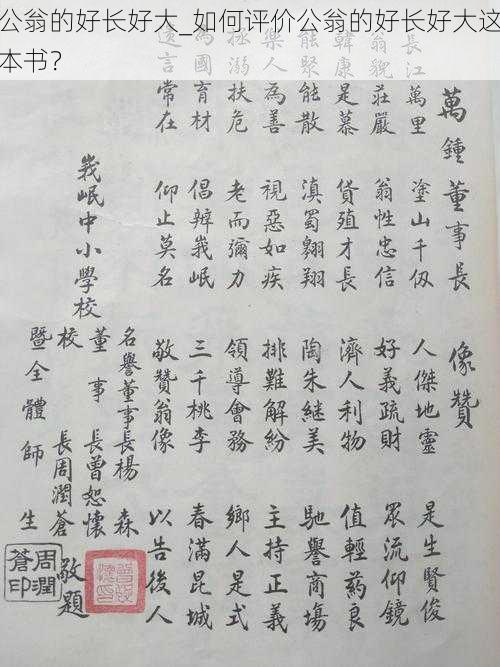 公翁的好长好大_如何评价公翁的好长好大这
本书？
萬鍾董事長 像贊
長江萬里 塗山千仭 人傑地靈 是生賢俊
翁貌莊嚴 翁性忠信 好義疏財 眾流仰鏡
韓康是慕 貨殖才長 濟人利物 值輕葯良
能聚能散 滇蜀翱翔 陶朱継美 馳譽商塲
樂人為善 視惡如疾 排難解紛 主持正義
拯溺扶危 老而彌力 領導會務 鄉人是式
為國育材 倡辦峩岷 三千桃李 春滿昆城
言常在 仰止莫名 敬贊翁像 以告後人
峩岷中小學校
名譽董事長楊森
董事長曾恕懷
校長周潤蒼
暨全體師生
敬題
周潤蒼印